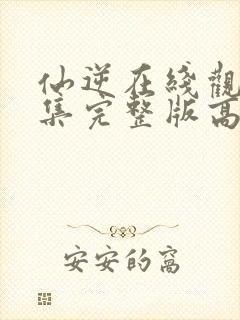 仙逆在綫觀
集完整版高
安安的窩